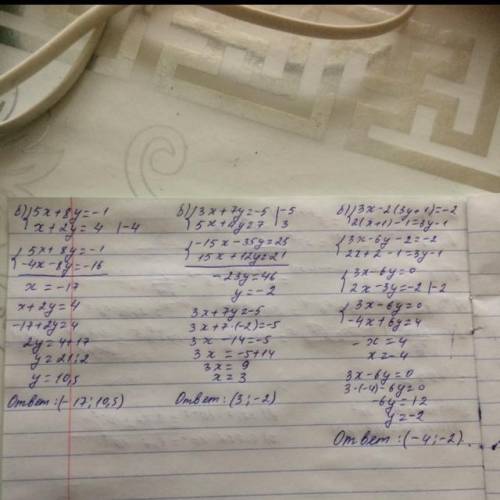 б) { 5x+8y=-1
x+2y=4 |-4
{ 5x+8y=-1
-4x-8y=-16
x=-17
x+2y=4
-17+2y=4
2y=4+17
y=21:2
y=10,5
Ответ: (-17; 10,5)
б) { 3x+7y=-5 |-5
5x+4y=7 | 3
{ -15x-35y=25
15x+12y=21
-23y=46
y=-2
3x+7y=-5
3x+7·(-2)=-5
3x-14=-5
3x=-5+14
3x=9
x=3
Ответ: (3; -2)
б) { 3x-2(3y+1)=-2
2(x+1)-1=3y-1
{ 3x-6y-2=-2
2x+2-1=3y-1
{ 3x-6y=0
2x-3y=-2 |-2
{ 3x-6y=0
-4x+6y=4
-x=4
x=-4
3x-6y=0
3·(-4)-6y=0
-6y=12
y=-2
Ответ: (-4; -2)